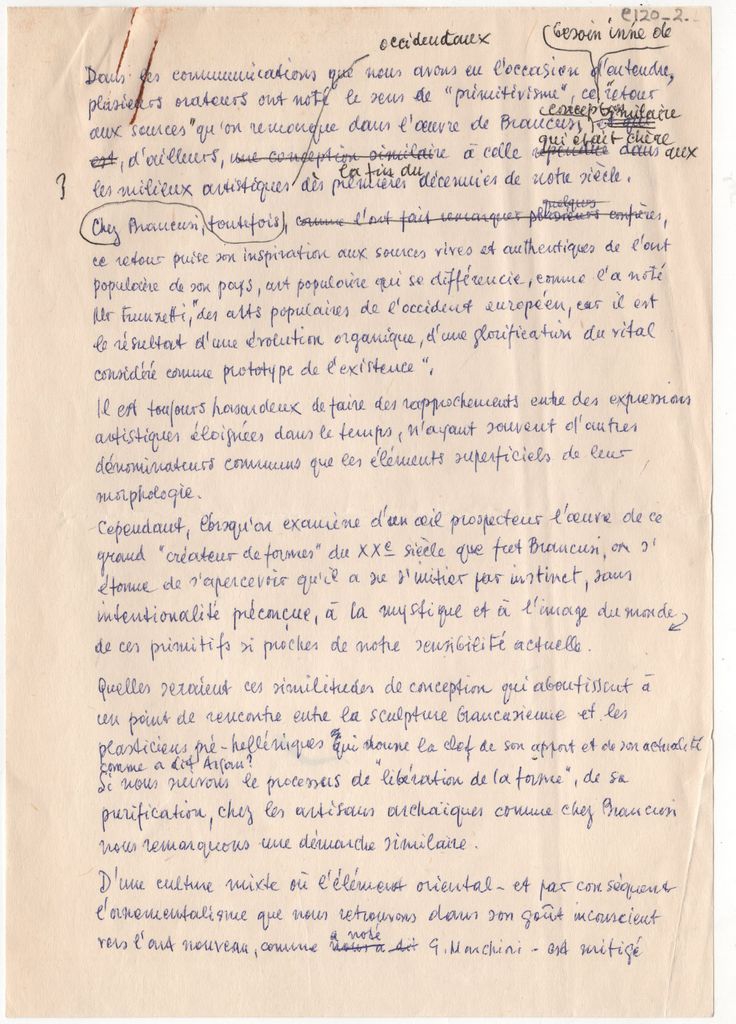 C120-2.
occidentaux
besoin inné de
Dans les communications que nous avons eu l'occasion d'entendre,
plusieurs orateurs ont noté le sens de "primitivisme", ce "retour
aux sources" qu'on remarque dans l'œuvre de Brancusi, et qui
conception similaire
est, d'ailleurs, une conception similaire à celle répandue dans aux
qui était chère
les milieux artistiques dès premières décennies de notre siècle.
la fin du
3
Chez Brancusi, toutefois, comme l'ont fait remarquer plusieurs confrères,
quelques
ce retour puise son inspiration aux sources vives et authentiques de l'art
populaire de son pays, art populaire qui se différencie, comme l'a noté
Mr Frunzetti, "des arts populaires de l'occident européen, car il est
le résultat d'une évolution organique, d'une glorification du vital
considéré comme prototype de l'existence".
Il est toujours hasardeux de faire des rapprochements entre des expressions
artistiques éloignées dans le temps, n'ayant souvent d'autres
dénominateurs communs que les éléments superficiels de leur
morphologie.
Cependant, lorsqu'on examine d'un œil prospecteur l'œuvre de ce
grand "créateur de formes" du XXe siècle que fut Brancusi, on s'
étonne de s'apercevoir qu'il a su s'initier par instinct, sans
intentionalité préconçue, à la mystique et à l'image du monde
de ces primitifs si proches de notre sensibilité actuelle.
Quelles seraient ces similitudes de conception qui aboutissent à
un point de rencontre entre la sculpture brancusienne et les
plasticiens pré-helléniques "qui donne la clef de son apport et de son actualité
comme a dit Argan?
Si nous suivons le processus de "libération de la forme", de sa
purification, chez les artisans archaïques comme chez Brancusi
nous remarquons une démarche similaire.
D'une culture mixte où l'élément oriental - et par conséquent
l'ornementalisme que nous retrouvons dans son goût inconscient
vers l'art nouveau, comme nous a dit G. Marchiori - est mitigé
a noté